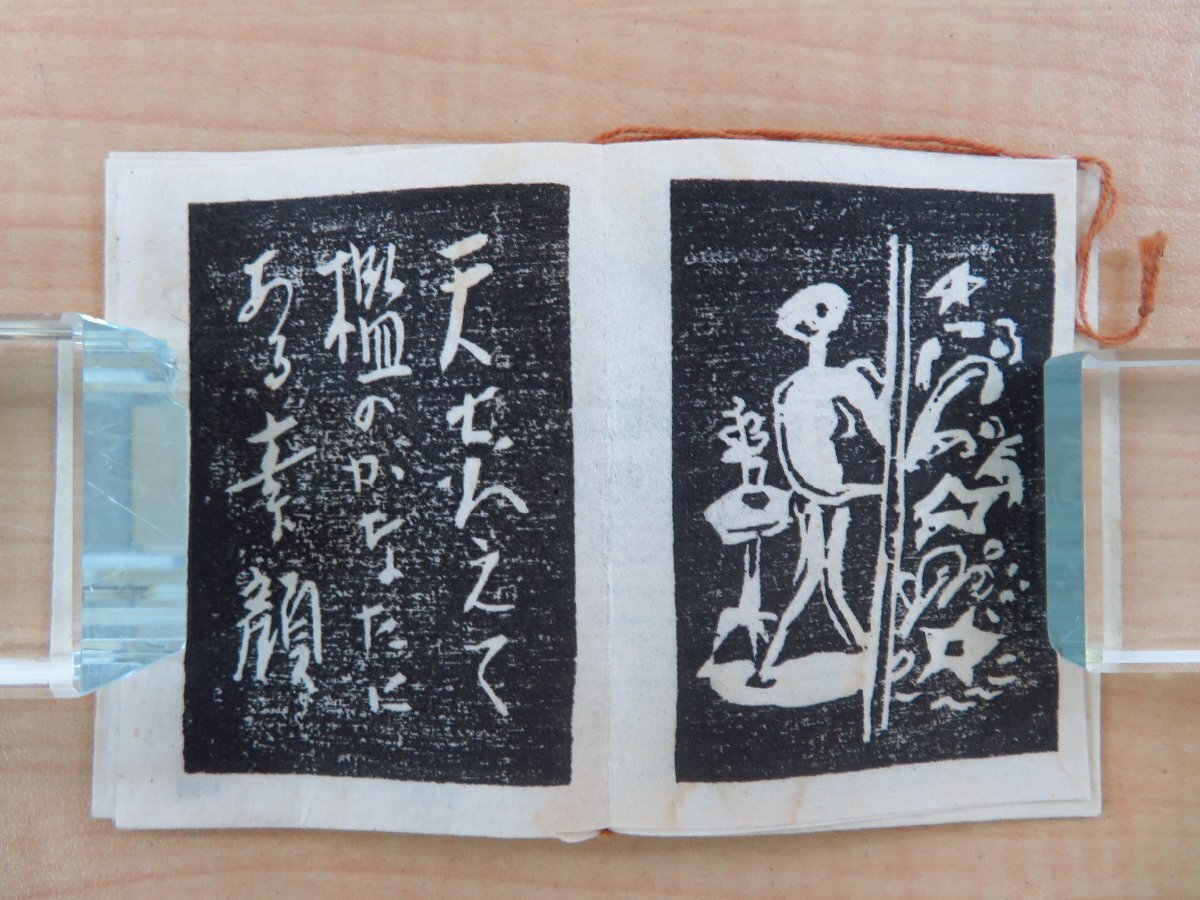 天えて
檻のかなたに
ある素顔